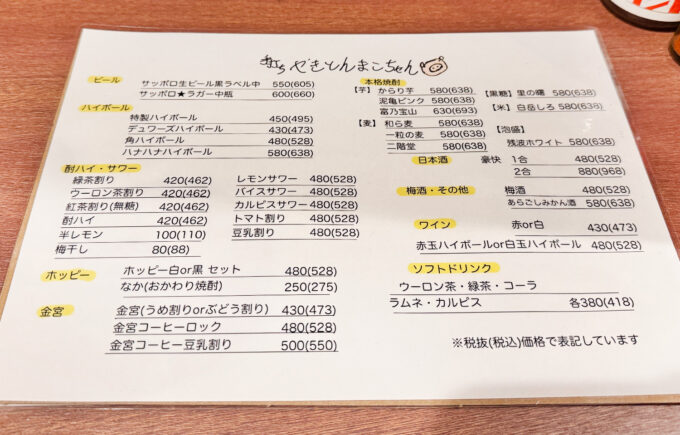 やきとんまこちゃん
ビール
サッポロ生ビール黒ラベル中 550(605)
サッポロ★ラガー中瓶 600(660)
ハイボール
特製ハイボール 450(495)
デュワーズハイボール 430(473)
角ハイボール 480(528)
ハナハナハイボール 580(638)
酎ハイ・サワー
緑茶割り 420(462)
ウーロン茶割り 420(462)
紅茶割り(無糖) 420(462)
酎ハイ 420(462)
半レモン 100(110)
梅干し 80(88)
レモンサワー 480(528)
バイスサワー 480(528)
カルピスサワー 480(528)
トマト割り 480(528)
豆乳割り 480(528)
ホッピー
ホッピー白or黒 セット 480(528)
なか(おかわり焼酎) 250(275)
金宮
金宮(うめ割りorぶどう割り) 430(473)
金宮コーヒーロック 480(528)
金宮コーヒー豆乳割り 500(550)
本格焼酎
【芋】 からり芋 580(638)
泥亀ピンク 580(638)
富乃宝山 630(693)
【麦】 和ら麦 580(638)
一粒の麦 580(638)
二階堂 580(638)
【黒糖】 里の曙 580(638)
【米】 白岳しろ 580(638)
【泡盛】
残波ホワイト 580(638)
日本酒
豪快 1合 480(528)
2合 880(968)
梅酒・その他
梅酒 480(528)
あらごしみかん酒 580(638)
ワイン
赤or白 430(473)
赤玉ハイボールor白玉ハイボール 480(528)
ソフトドリンク
ウーロン茶・緑茶・コーラ
ラムネ・カルピス 各380(418)
※税抜(税込)価格で表記しています